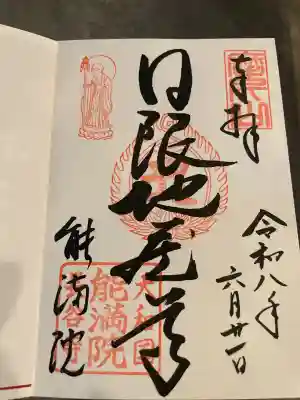 奉拝
日限地蔵尊
能満院
令和八年
六月廿一日
大和国
能満院